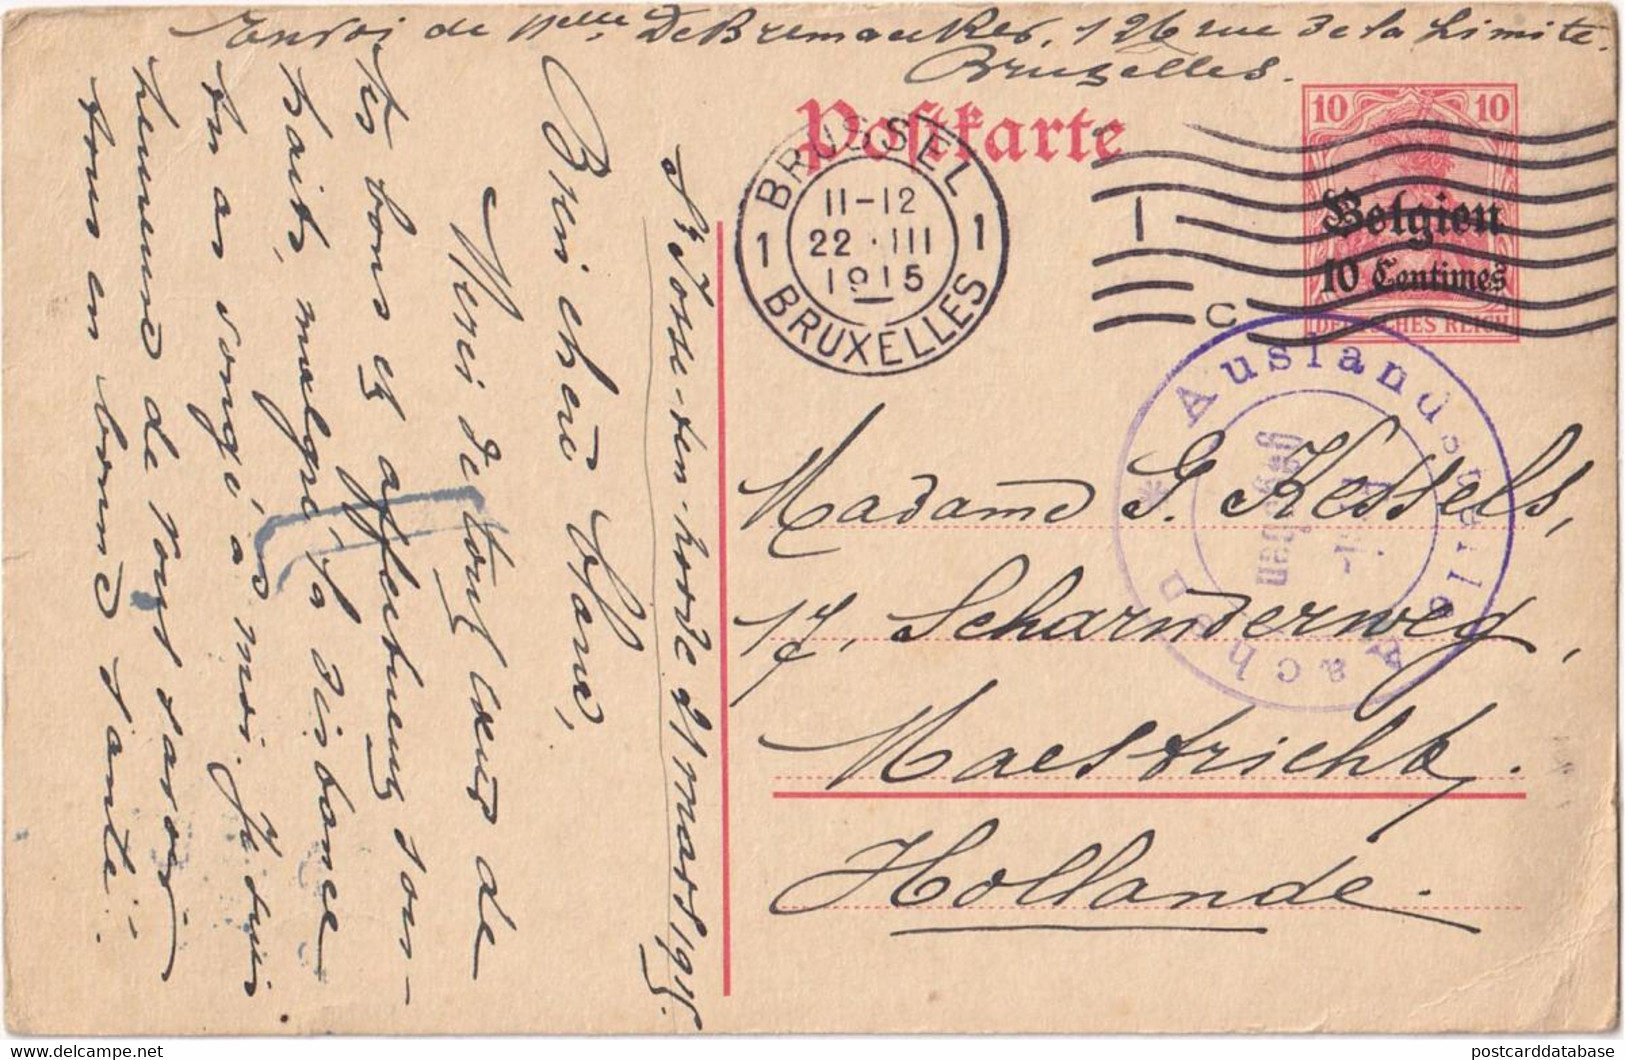 Envoi de Melle De Bremaeker, 126 rue de la Limite.
Bruxelles.
Postkarte
BRUSSEL
1 1
11-12
22 · III
1915
BRUXELLES
1
C
10 10
Belgien
10 Centimes
DEUTSCHES REICH
Auslandsstelle
Aachen
Freigegeben
Madame G. Kessels,
17, Scharnderweg,
Maestricht.
Hollande.
St Josse-ten-noode 21 mars 1915.
Bien chère
Merci de tout cœur de
tes bons et affectueux sou-
haits, malgré la distance
tu as songé à moi. Je suis
heureuse de vous savoir
tous en bonne santé.
postcarddatabase